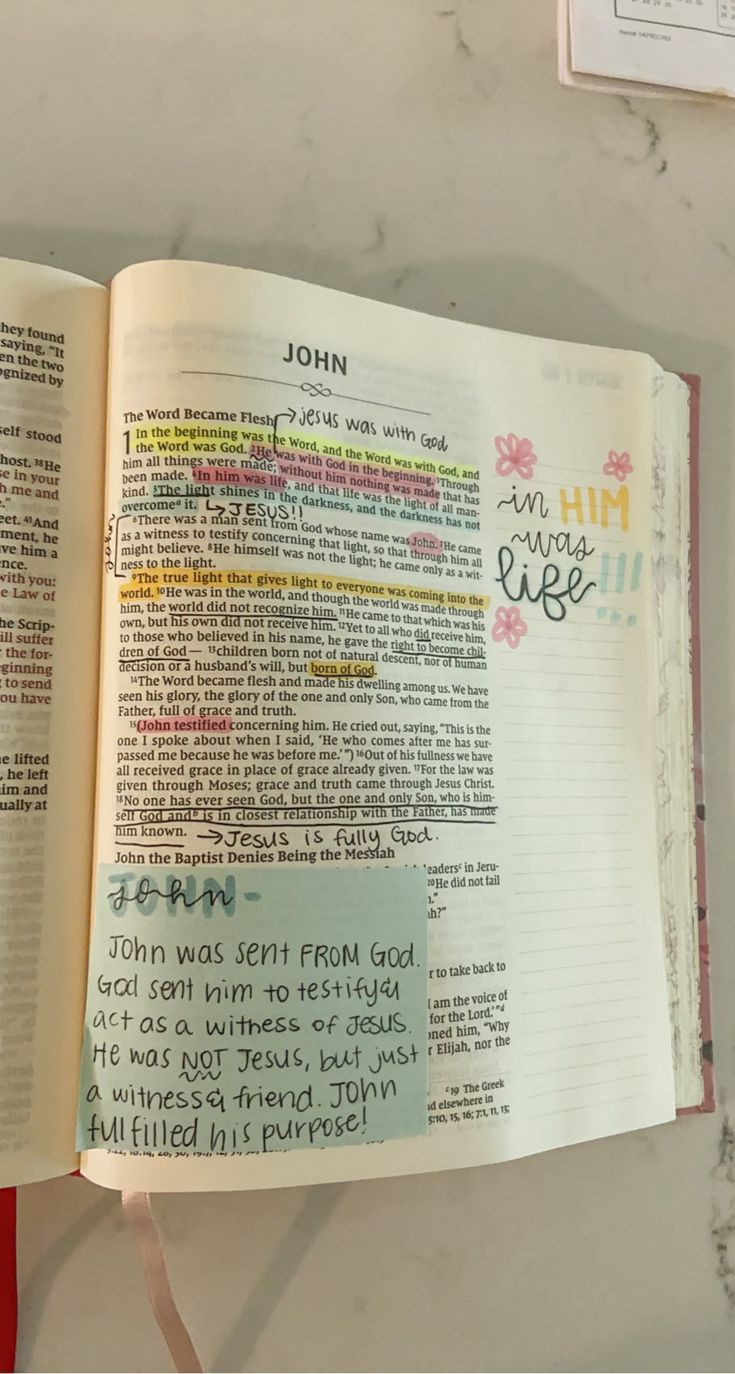 hey found
saying, "It
en the two
ognized by
self stood
host. 38He
se in your
h me and
."
eet. 41And
ment, he
ve him a
ence.
with you:
e Law of
he Scrip-
ill suffer
the for-
ginning
to send
ou have
e lifted
, he left
im and
ually at
JOHN
The Word Became Flesh → jesus was with God
1 In the beginning was the Word, and the Word was with God, and
the Word was God. 2He was with God in the beginning. 3Through
him all things were made; without him nothing was made that has
been made. 4In him was life, and that life was the light of all man-
kind. 5The light shines in the darkness, and the darkness has not
overcomeᵃ it. → JESUS!!
John
6There was a man sent from God whose name was John. 7He came
as a witness to testify concerning that light, so that through him all
might believe. 8He himself was not the light; he came only as a wit-
ness to the light.
9The true light that gives light to everyone was coming into the
world. 10He was in the world, and though the world was made through
him, the world did not recognize him. 11He came to that which was his
own, but his own did not receive him. 12Yet to all who did receive him,
to those who believed in his name, he gave the right to become chil-
dren of God— 13children born not of natural descent, nor of human
decision or a husband's will, but born of God.
14The Word became flesh and made his dwelling among us. We have
seen his glory, the glory of the one and only Son, who came from the
Father, full of grace and truth.
15(John testified concerning him. He cried out, saying, "This is the
one I spoke about when I said, 'He who comes after me has sur-
passed me because he was before me.'") 16Out of his fullness we have
all received grace in place of grace already given. 17For the law was
given through Moses; grace and truth came through Jesus Christ.
18No one has ever seen God, but the one and only Son, who is him-
self God andᵇ is in closest relationship with the Father, has made
him known. → Jesus is fully God.
John the Baptist Denies Being the Messiah
leadersᶜ in Jeru-
20He did not fail
ah?"
r to take back to
I am the voice of
for the Lord.'"ᵈ
oned him, "Why
r Elijah, nor the
ᶜ19 The Greek
nd elsewhere in
5:10, 15, 16; 7:1, 11, 13;
in HIM
was
life!!!
JOHN
john -
John was sent FROM God.
God sent him to testify &
act as a witness of JESUS.
He was NOT Jesus, but just
a witness & friend. John
fulfilled his purpose!